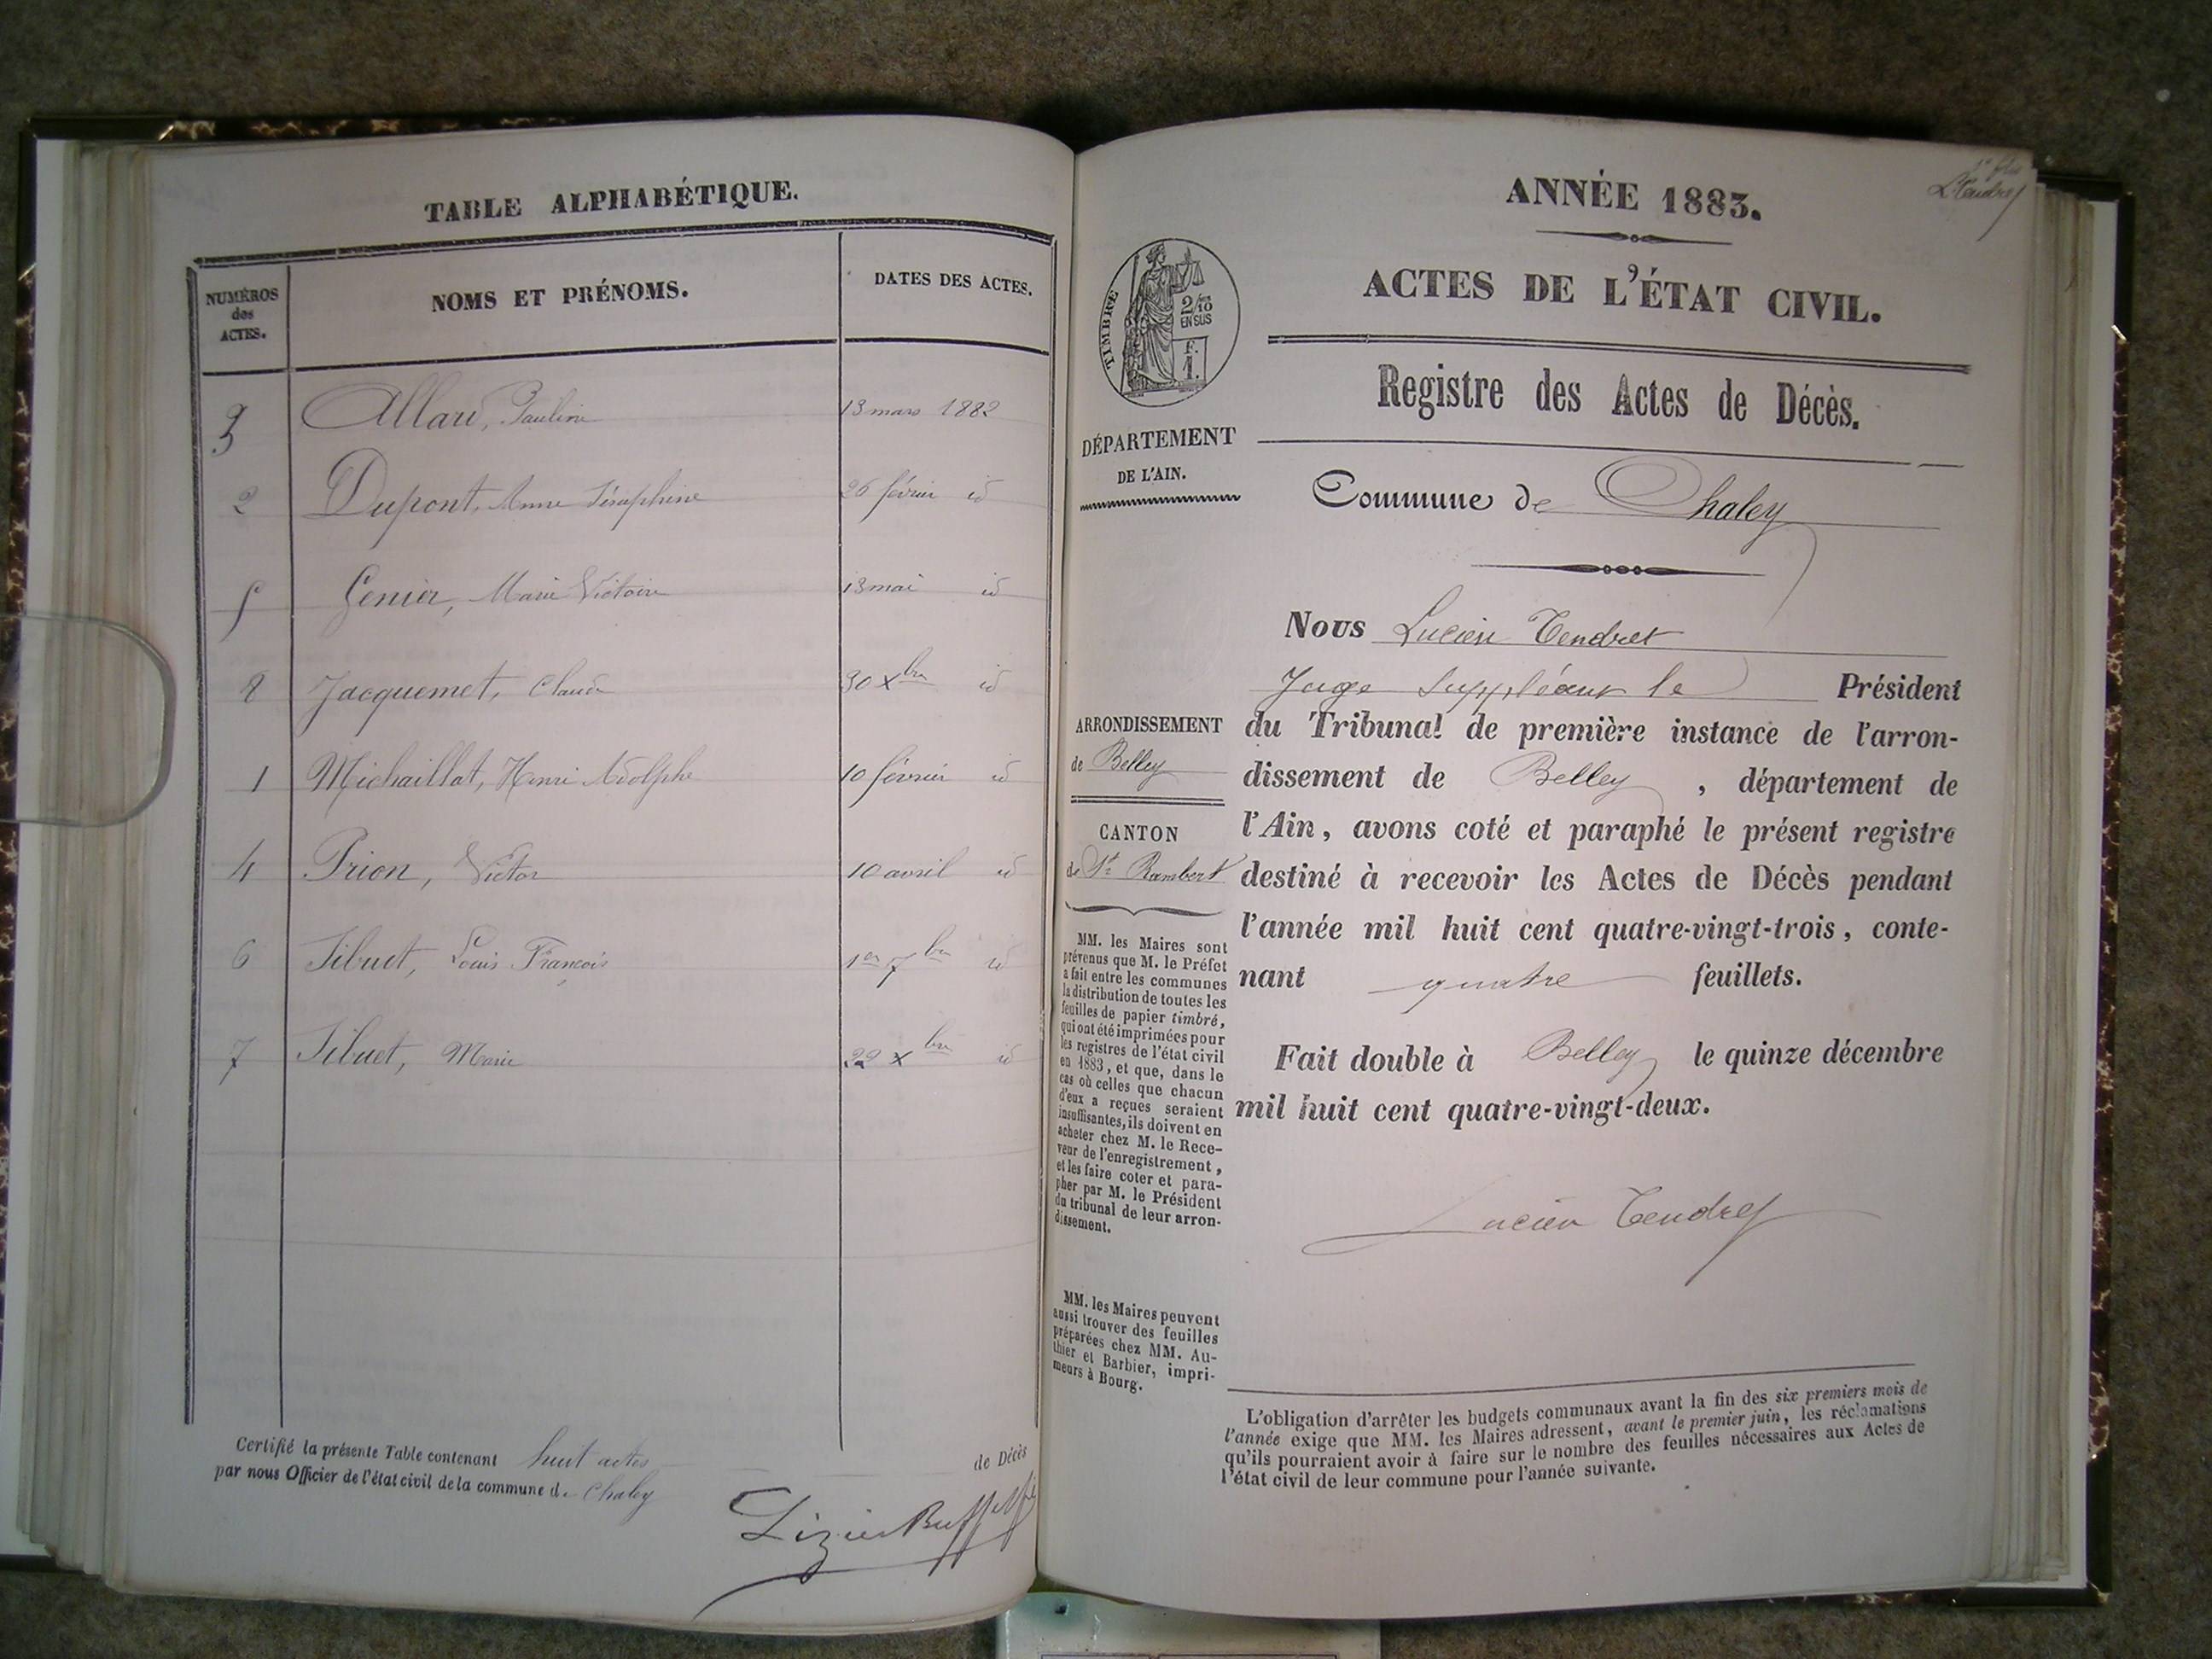 TABLE ALPHABÉTIQUE.
NUMÉROS des ACTES.
NOMS ET PRÉNOMS.
DATES DES ACTES.
3 Allard, Pauline 13 mars 1882
2 Dupont, Anne Séraphine 26 février id
5 Genier, Marie Victoire 13 mai id
8 Jacquemet, Claude 30 xbre id
1 Michaillat, Henri Adolphe 10 février id
4 Prion, Victor 10 avril id
6 Tibuet, Louis François 1er 7bre id
7 Tibuet, Marie 22 xbre id
Certifié la présente Table contenant huit actes de Décès
par nous Officier de l'état civil de la commune de Chaley
ANNÉE 1883.
LTendret
ACTES DE L'ÉTAT CIVIL.
TIMBRE
2/10
EN SUS
F.
1.
Registre des Actes de Décès.
DÉPARTEMENT
DE L'AIN.
Commune de Chaley
Nous Lucien Tendret
Juge suppléant le Président
du Tribunal de première instance de l'arron-
dissement de Belley, département de
l'Ain, avons coté et paraphé le présent registre
destiné à recevoir les Actes de Décès pendant
l'année mil huit cent quatre-vingt-trois, conte-
nant quatre feuillets.
Fait double à Belley le quinze décembre
mil huit cent quatre-vingt-deux.
Lucien Tendret
ARRONDISSEMENT
de Belley
CANTON
de St Rambert
MM. les Maires sont
prévenus que M. le Préfet
a fait entre les communes
la distribution de toutes les
feuilles de papier timbré,
qui ont été imprimées pour
les registres de l'état civil
en 1883, et que, dans le
cas où celles que chacun
d'eux a reçues seraient
insuffisantes, ils doivent en
acheter chez M. le Rece-
veur de l'enregistrement,
et les faire coter et para-
pher par M. le Président
du tribunal de leur arron-
dissement.
MM. les Maires peuvent
aussi trouver des feuilles
préparées chez MM. Au-
thier et Barbier, impri-
meurs à Bourg.
L'obligation d'arrêter les budgets communaux avant la fin des six premiers mois de
l'année exige que MM. les Maires adressent, avant le premier juin, les réclamations
qu'ils pourraient avoir à faire sur le nombre des feuilles nécessaires aux Actes de
l'état civil de leur commune pour l'année suivante.